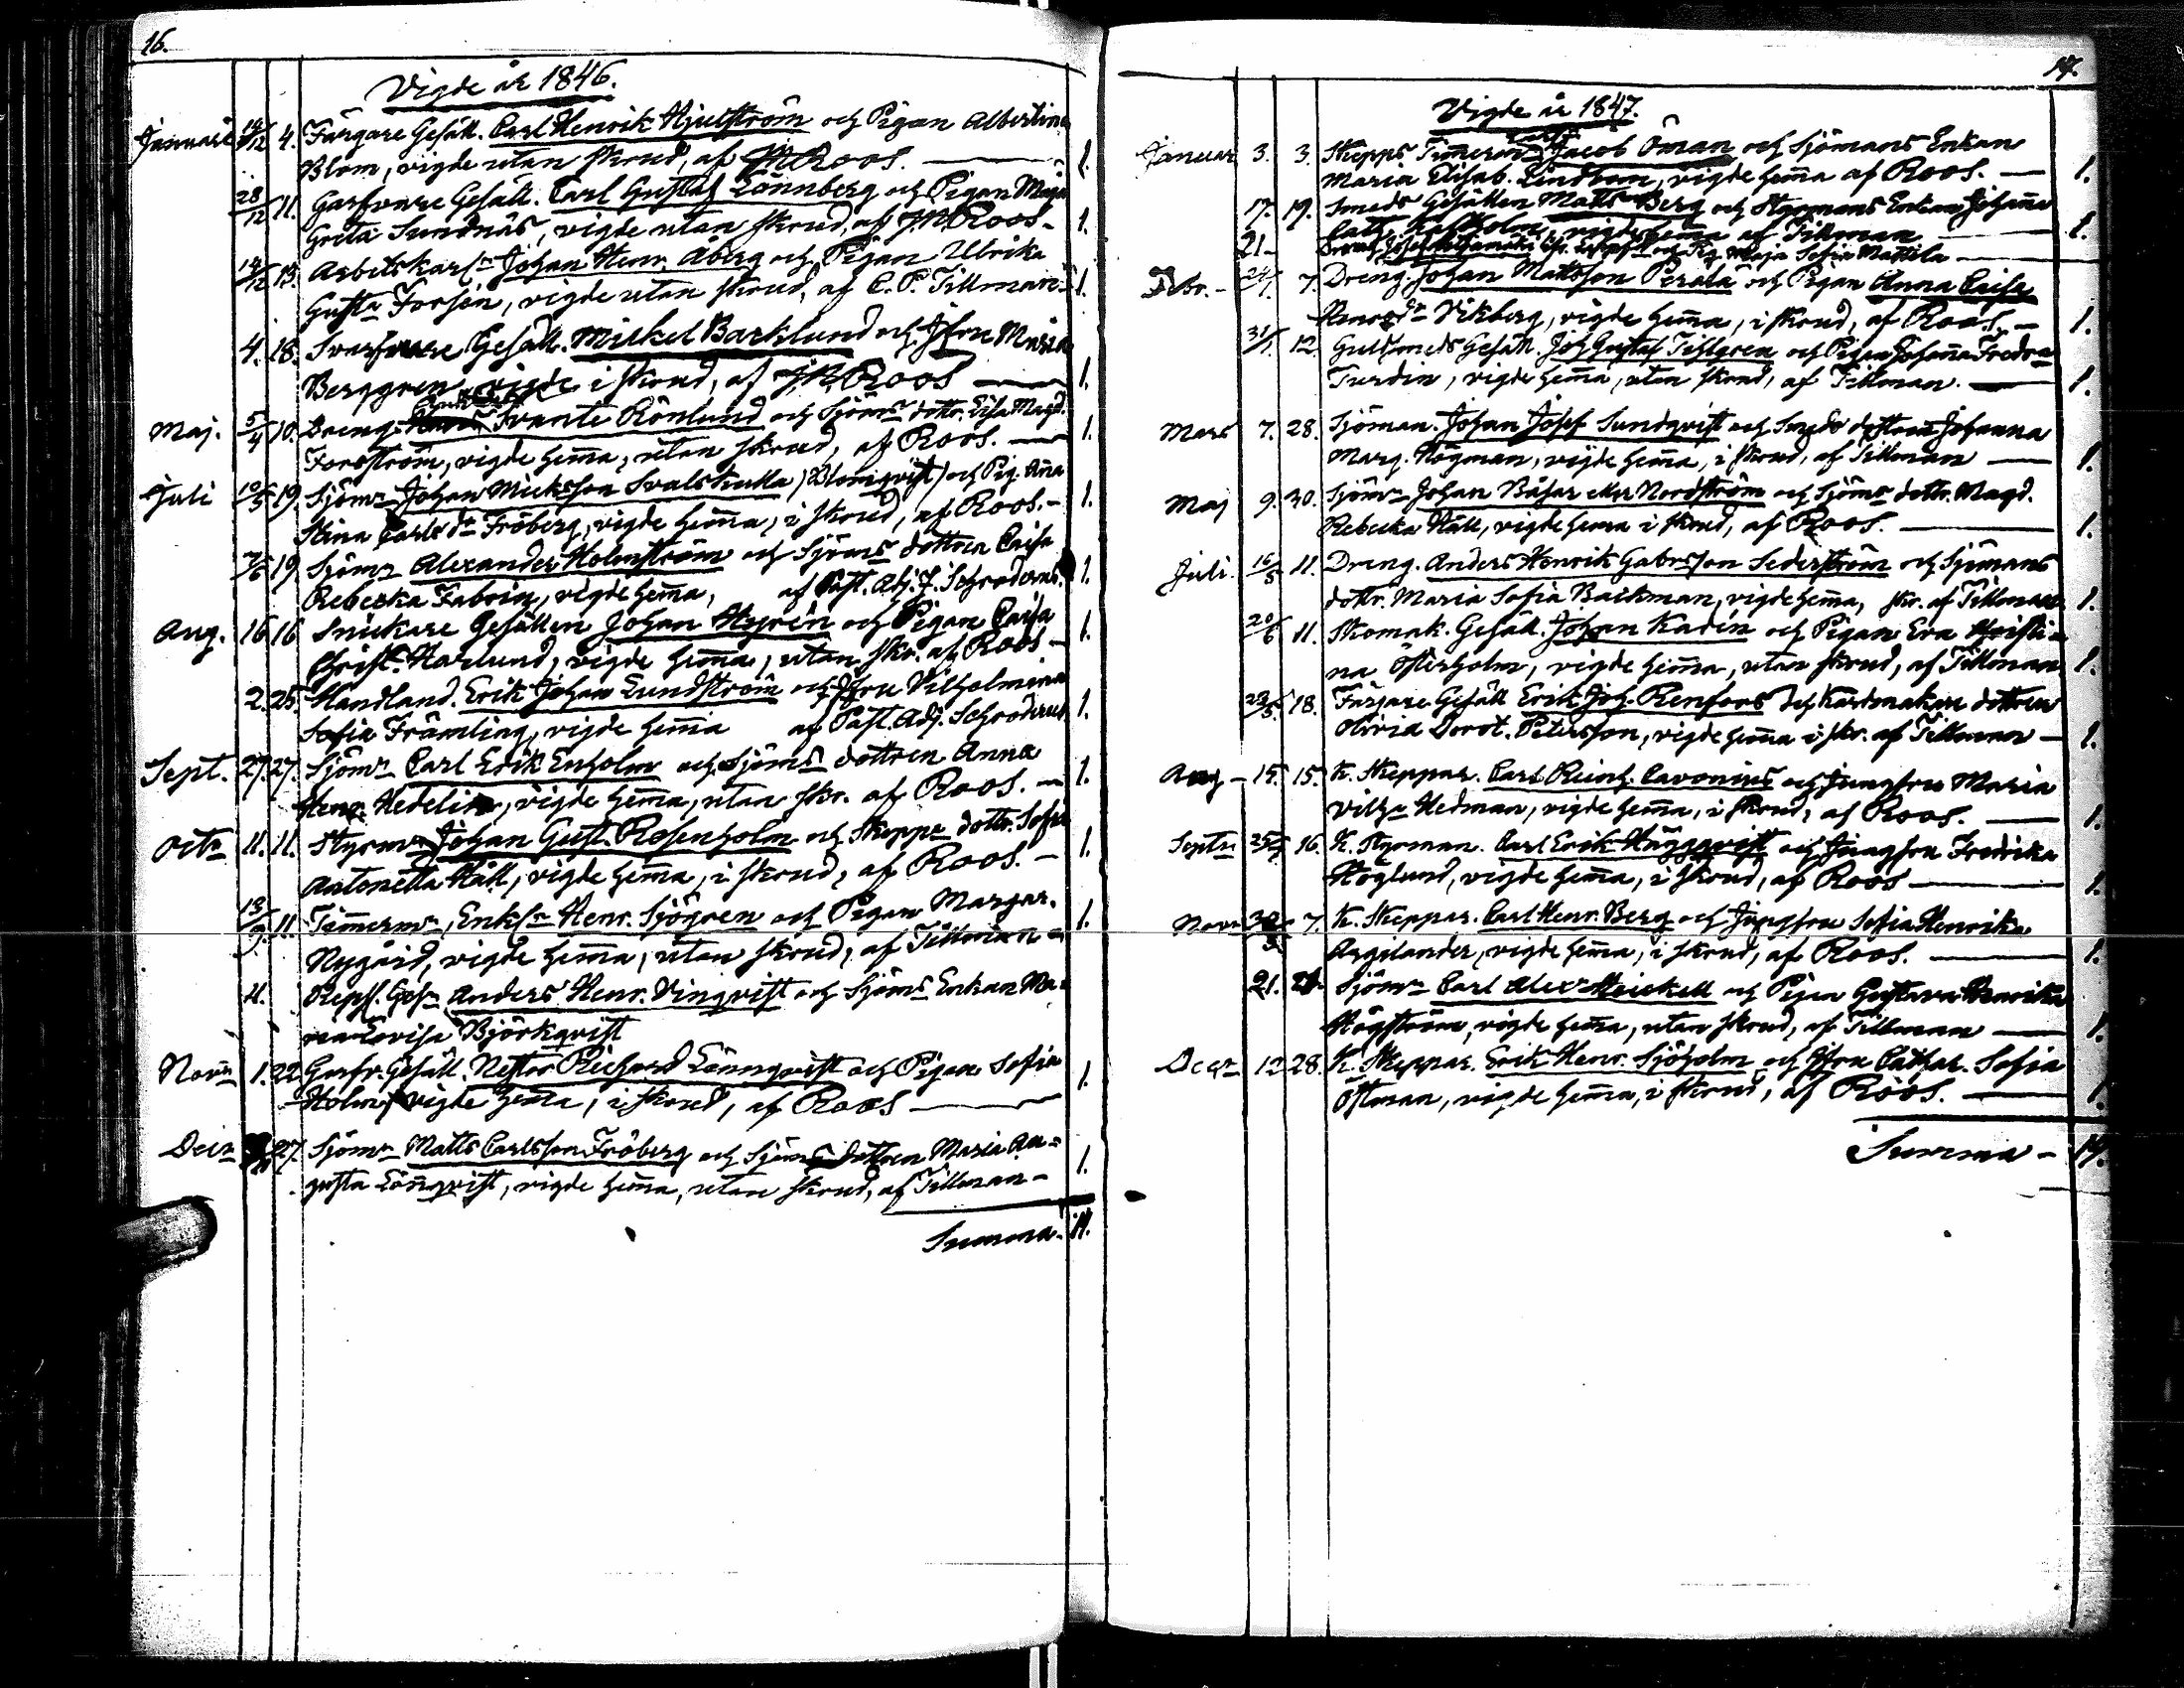 16.
Vigde år 1846.
Januari 14/12 4. Färgare Gesäll. Carl Henrik Hjulström och Pigan Albertina
Blom, vigde utan skrud, af JM Roos. 1.
28/12 11. Garfvare Gesäll. Carl Gustaf Lönnberg och Pigan Maja
Greta Sundnäs, vigde utan skrud, af JM Roos - 1.
14/12 13. Arbetskarlsn Johan Henr. Åberg och Pigan Ulrika
Gusta Forsén, vigde utan skrud, af C. P. Tillman 1.
4. 18. Svarfvare Gesäll. Mickel Backlund och Jfru Maria
Berggren vigde i skrud, af JM Roos 1.
Maj. 5/4 10. Dreng. Svante Rönlund och Sjöms dottr. Lisa Magd.
Forsström, vigde hema, utan skrud, af Roos. 1.
Juli 10/5 19. Sjömn Johan Mickelson Svalskulla (Blomqvist) och Pig. Ana
Stina Carlsdr Fröberg, vigde hema, i skrud, af Roos. - 1.
7/6 19. Sjömn Alexander Holmström och Sjöms dottren Caisa
Rebecka Fabrin, vigde hema, af Past. Adj. J. Schroderus 1.
Aug. 16 16 Snickare Gesällen Johan Hyrén och Pigan Caisa
Christ. Harlund, vigde hema, utan skr. af Roos - 1.
2. 25. Handland. Erik Johan Lundström och Jfru Vilhelmina
Sofia Främling, vigde hema af Past. Adj. Schroderus 1.
Sept. 27. 27. Sjömn Carl Erik Enholm och Sjöms dottren Anna
Henr. Hedelin, vigde hema, utan skr. af Roos. - 1.
Octr 11. 11. Styrmn Johan Gust. Rosenholm och Skepps dottr. Sofia
Antonetta Häll, vigde hema, i skrud, af Roos. - 1.
13/9. 11. Timermn, Enkln Henr. Sjögren och Pigan Margar.
Nygård, vigde hema, utan skrud, af Tillman - 1.
11. Repsl. Gesn Anders Henr. Vinqvist och Sjöms Enkan Ma-
ria Lovisa Björkqvist
Novr 1. 22. Garfv. Gesäll. Nestor Richard Lönnqvist och Pigan Sofia
Holm, vigde hema, i skrud, af Roos 1.
Decr 27. Sjömn Matts Carlsson Fröberg och Sjöms dottren Maria Au-
gusta Lönqvist, vigde hema, utan skrud, af Tillman - 1.
Summa. 14.
17.
Vigde år 1847.
Januar 3. 3. Skepps Timerman Jacob Öman och Sjömans Enkan
Maria Elisab. Lindbom, vigde hema af Roos. 1.
17. 19. Smeds Gesällen Matts Berg och Styrmans Enkan Johana
Cath. Kastholm, vigde hema af Tillman 1.
21 - Dreng Josef och Pig. Maja Sofia Mattila
Febr. - 24/1. 7. Dreng. Johan Mattsson Perälä och Pigan Anna Caisa
Henrsdr Vikberg, vigde hema, i skrud, af Roos. - 1.
31/1. 12. Guldsmeds Gesäll. Joh Gustaf Tillgren och Pigan Johana Fredr-a
Turdin, vigde hema, utan skrud, af Tillman. 1.
Mars 7. 28. Sjöman. Johan Josef Sundqvist och Smeds dottren Johanna
Marg. Högman, vigde hema, i skrud, af Tillman 1.
Maj 9. 30. Sjömn Johan Båsar eller Nordström och Sjöms dottr. Magd.
Rebecka Häll, vigde hema i skrud, af Roos. 1.
Juli. 16/5 11. Dreng. Anders Henrik Gabrsson Sederström och Sjömans
dottr. Maria Sofia Backman, vigde hema, skr. af Tillman 1.
20/6 11. Skomak. Gesäll. Johan Kadin och Pigan Eva Christi-
na Österholm, vigde hema, utan skrud, af Tillman. 1.
23/5. 18. Färgare Gesäll Erik Joh. Renfors och Kardmakare dottren
Olivia Dorot. Peterson, vigde hema i skr. af Tillman 1.
Aug - 15. 15. K. Skeppar. Carl Reinh. Cavonius och Jungfru Maria
Vilha Hedman, vigde hema, i skrud, af Roos. 1.
Septr 25/7 16. K. Styrman. Carl Erik Häggqvist och Jungfru Fredrika
Höglund, vigde hema, i skrud, af Roos 1.
Novr 7. K. Skeppar. Carl Henr. Berg och Jungfru Sofia Henrika
Argilander, vigde hema, i skrud, af Roos. 1.
21. 21. Sjömn Carl Alexr Heickell och Pigan Gustava Henrika
Högström, vigde hema, utan skrud, af Tillman 1.
Decr 12 28. K. Skeppar. Erik Henr. Sjöholm och Jfru Cathar. Sofia
Östman, vigde hema, i skrud, af Roos. 1.
Summa - 14.